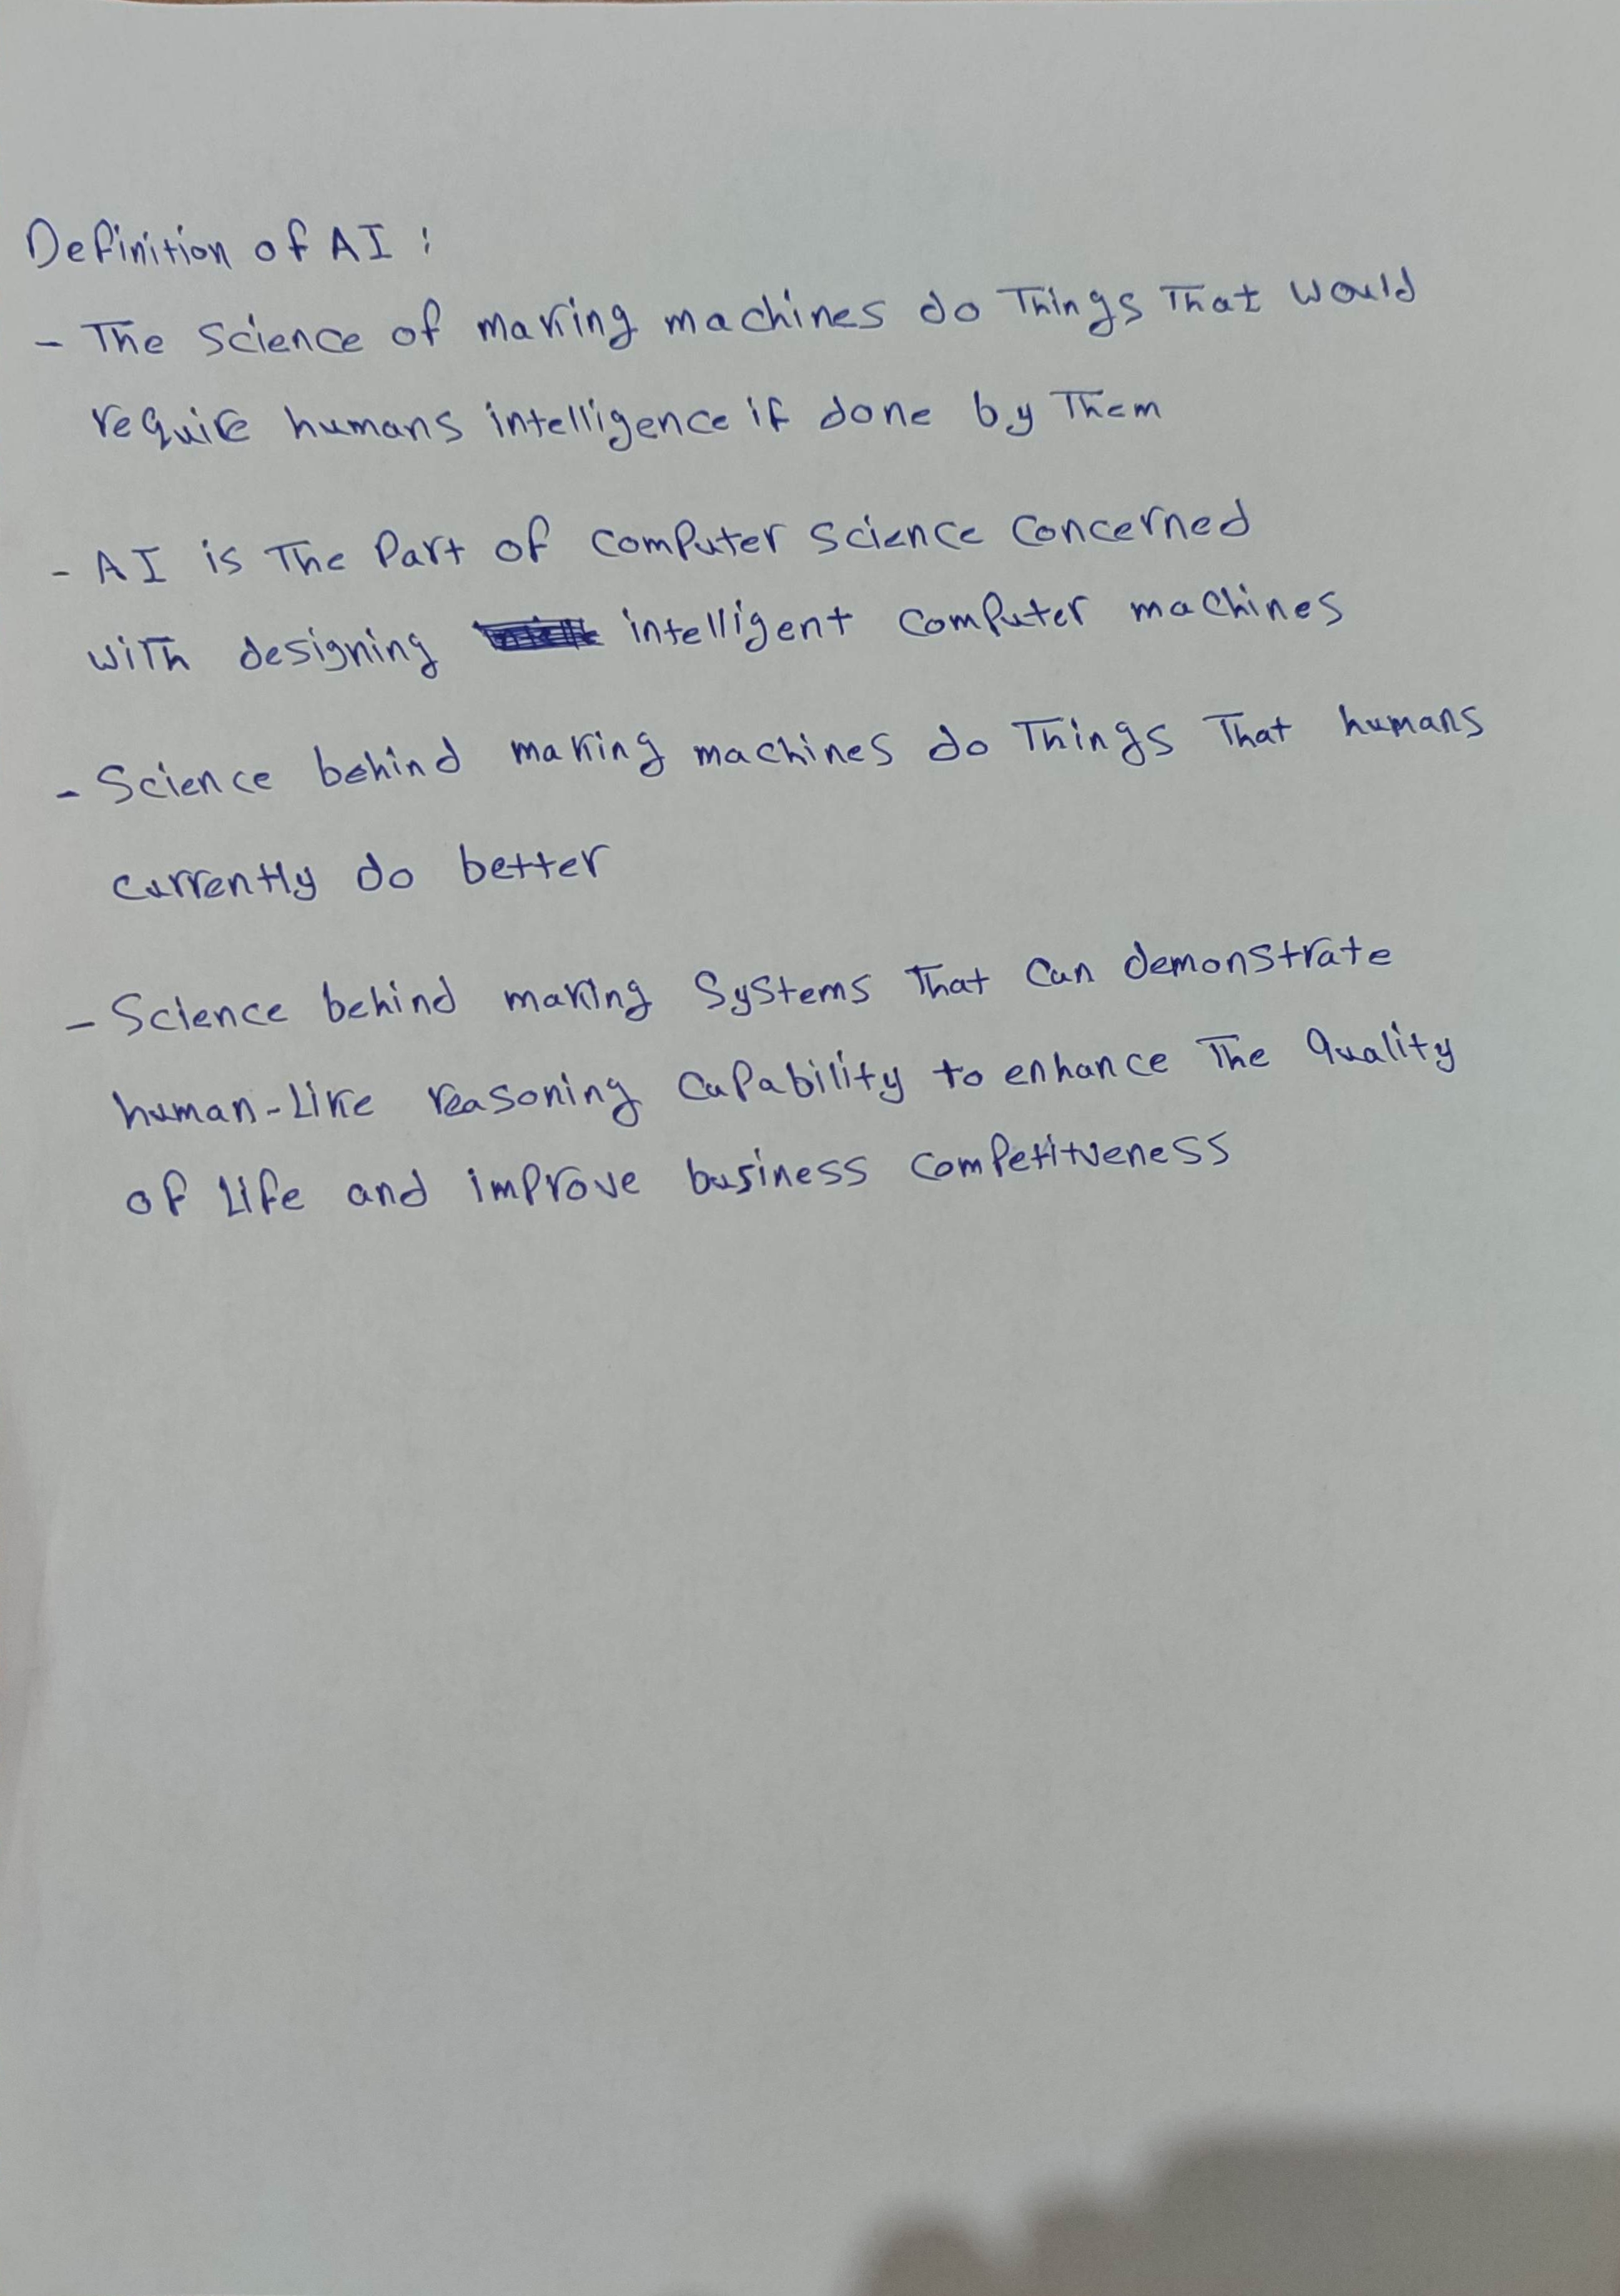 Definition of AI :
- The Science of making machines do Things That would
require humans intelligence if done by Them
- AI is The Part of Computer Science Concerned
with designing intelligent Computer machines
- Science behind making machines do Things That humans
currently do better
- Science behind making Systems That Can demonstrate
human-Like reasoning Capability to enhance The Quality
of Life and improve business Competitveness